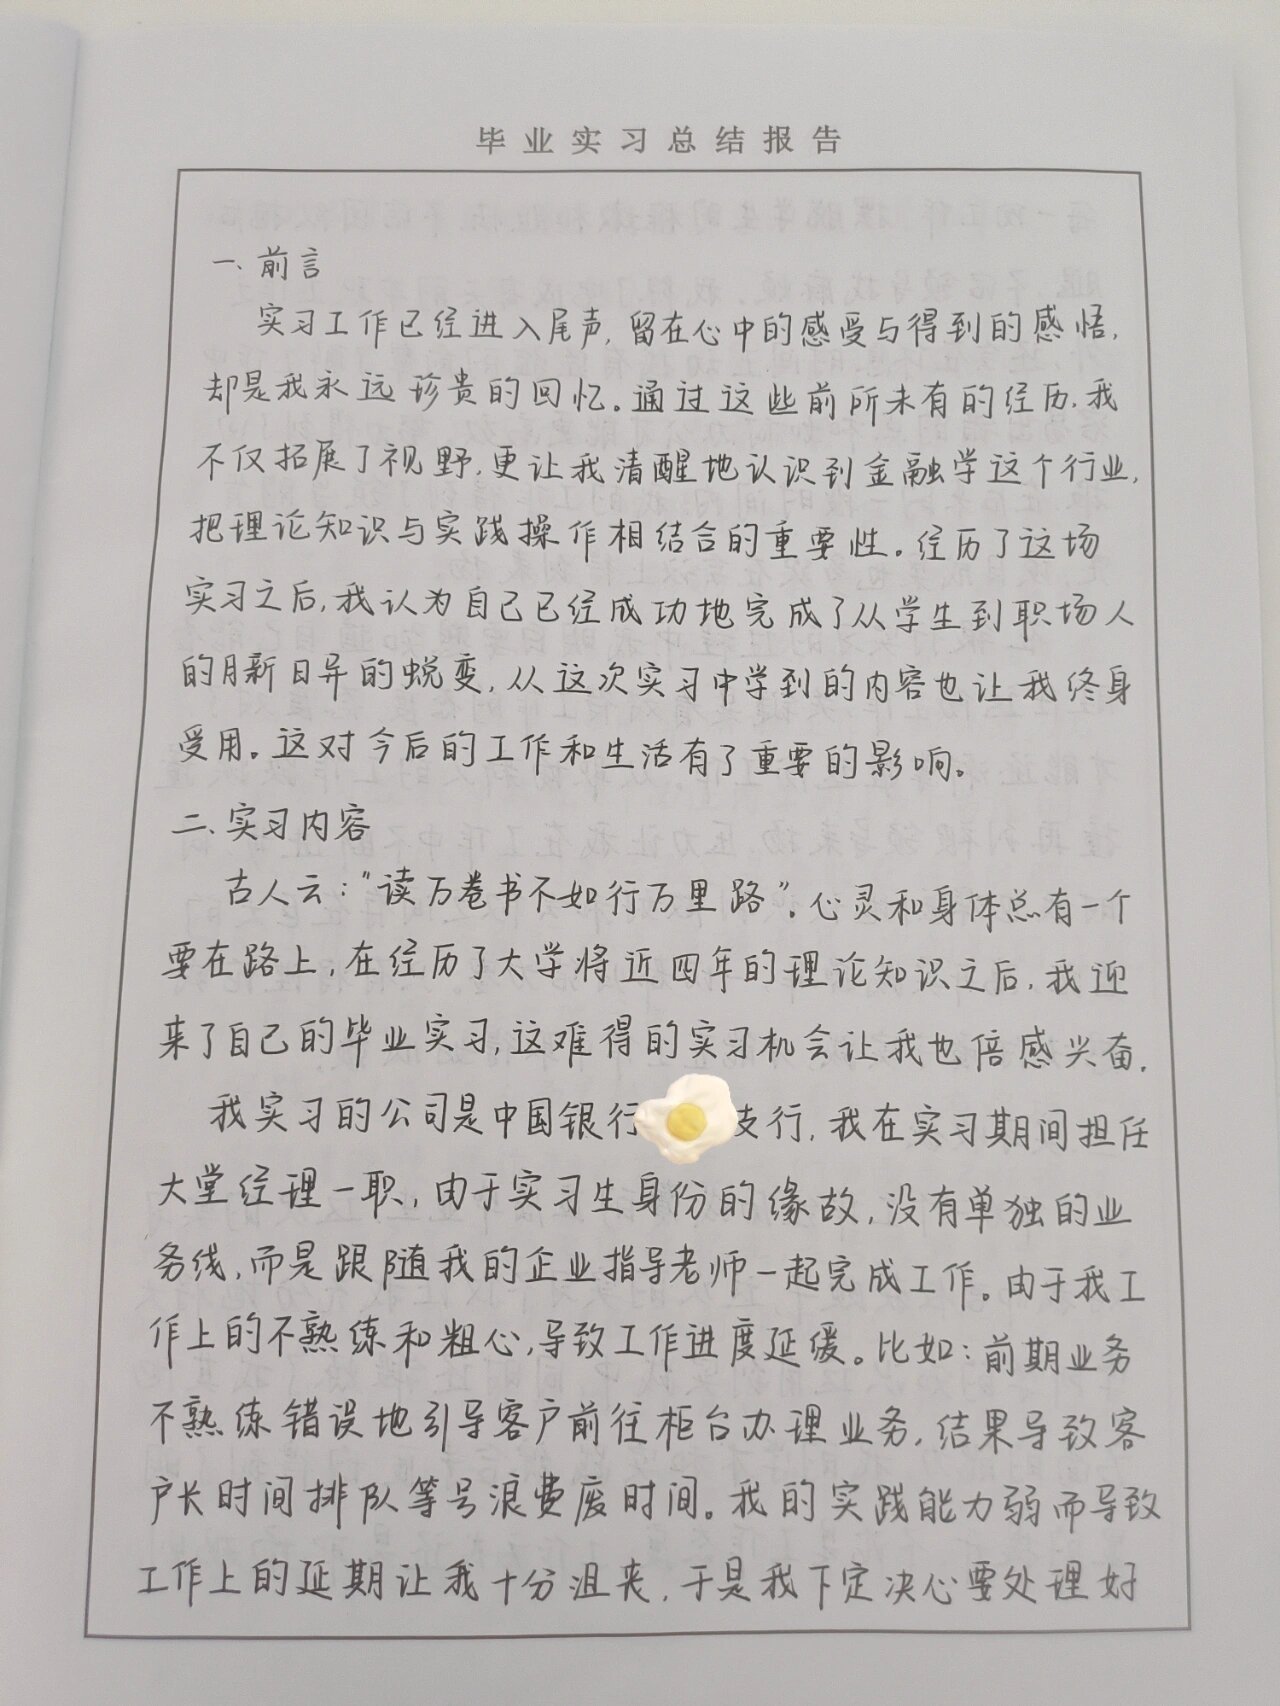 毕业实习总结报告
一、前言
实习工作已经进入尾声,留在心中的感受与得到的感悟,
却是我永远珍贵的回忆。通过这些前所未有的经历,我
不仅拓展了视野,更让我清醒地认识到金融学这个行业,
把理论知识与实践操作相结合的重要性。经历了这场
实习之后,我认为自己已经成功地完成了从学生到职场人
的月新日异的蜕变,从这次实习中学到的内容也让我终身
受用。这对今后的工作和生活有了重要的影响。
二、实习内容
古人云:"读万卷书不如行万里路"。心灵和身体总有一个
要在路上,在经历了大学将近四年的理论知识之后,我迎
来了自己的毕业实习,这难得的实习机会让我也倍感兴奋.
我实习的公司是中国银行 支行,我在实习期间担任
大堂经理一职,由于实习生身份的缘故,没有单独的业
务线,而是跟随我的企业指导老师一起完成工作。由于我工
作上的不熟练和粗心,导致工作进度延缓。比如:前期业务
不熟练错误地引导客户前往柜台办理业务,结果导致客
户长时间排队等号浪费废时间。我的实践能力弱而导致
工作上的延期让我十分沮丧,于是我下定决心要处理好